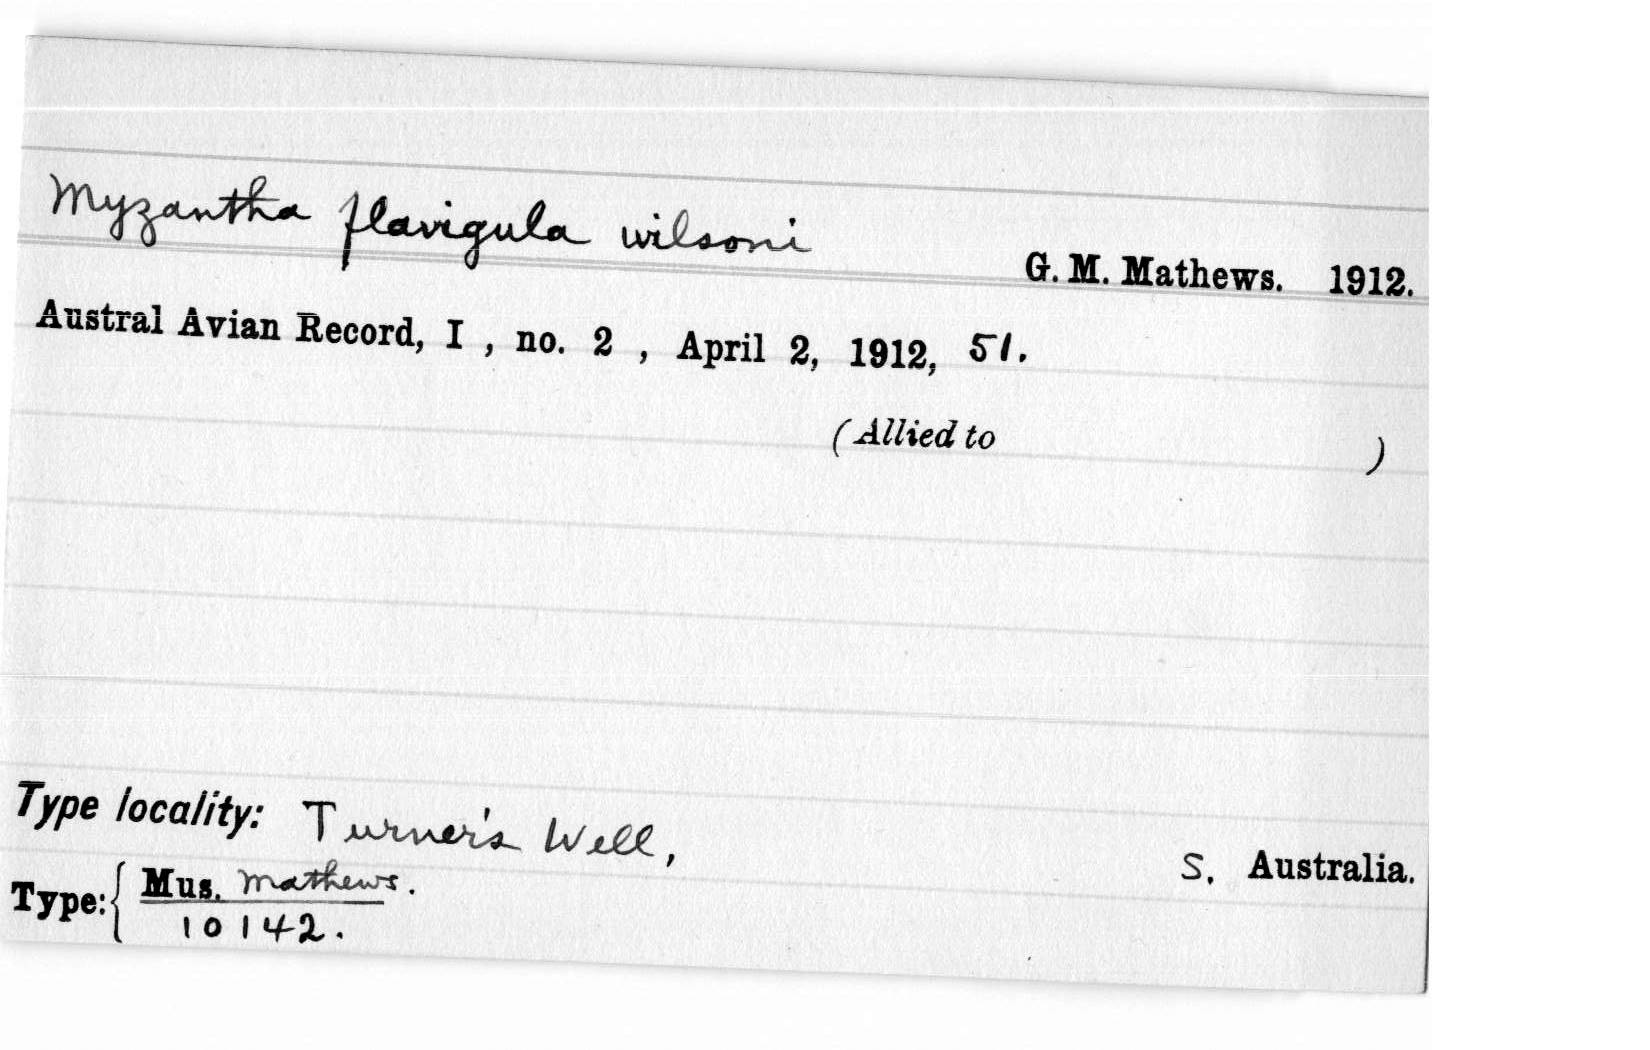 Myzantha flavigula wilsoni
G. M. Mathews. 1912.
Austral Avian Record, I , no. 2 , April 2, 1912, 51.
(Allied to )
Type locality: Turner's Well, S. Australia.
Type: { Mus. Mathews.
10142.